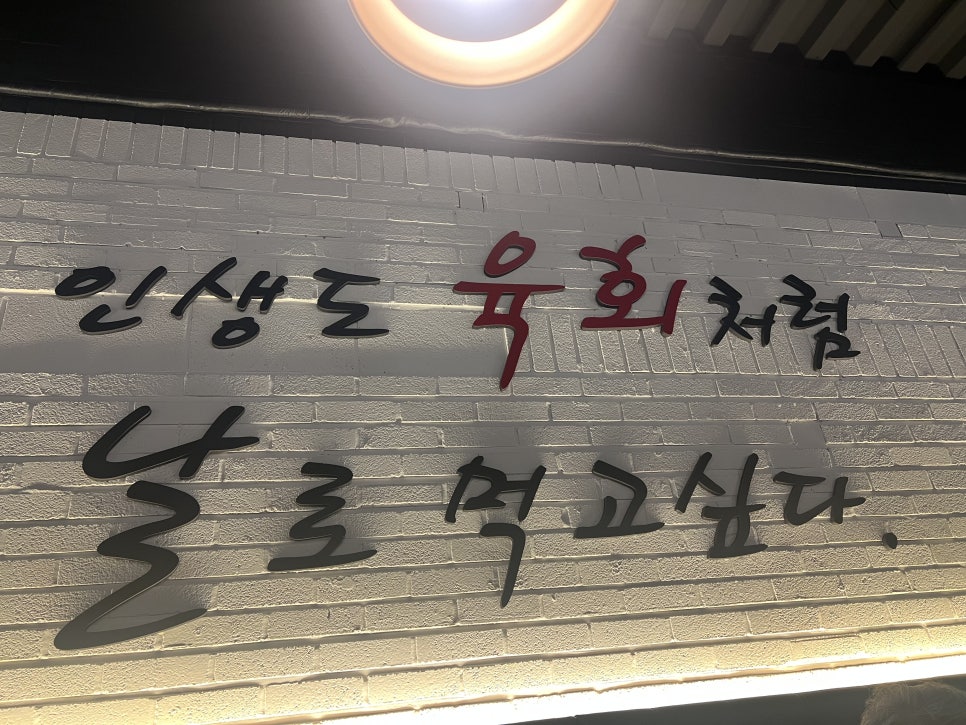 인생도 육회처럼
날로 먹고싶다.